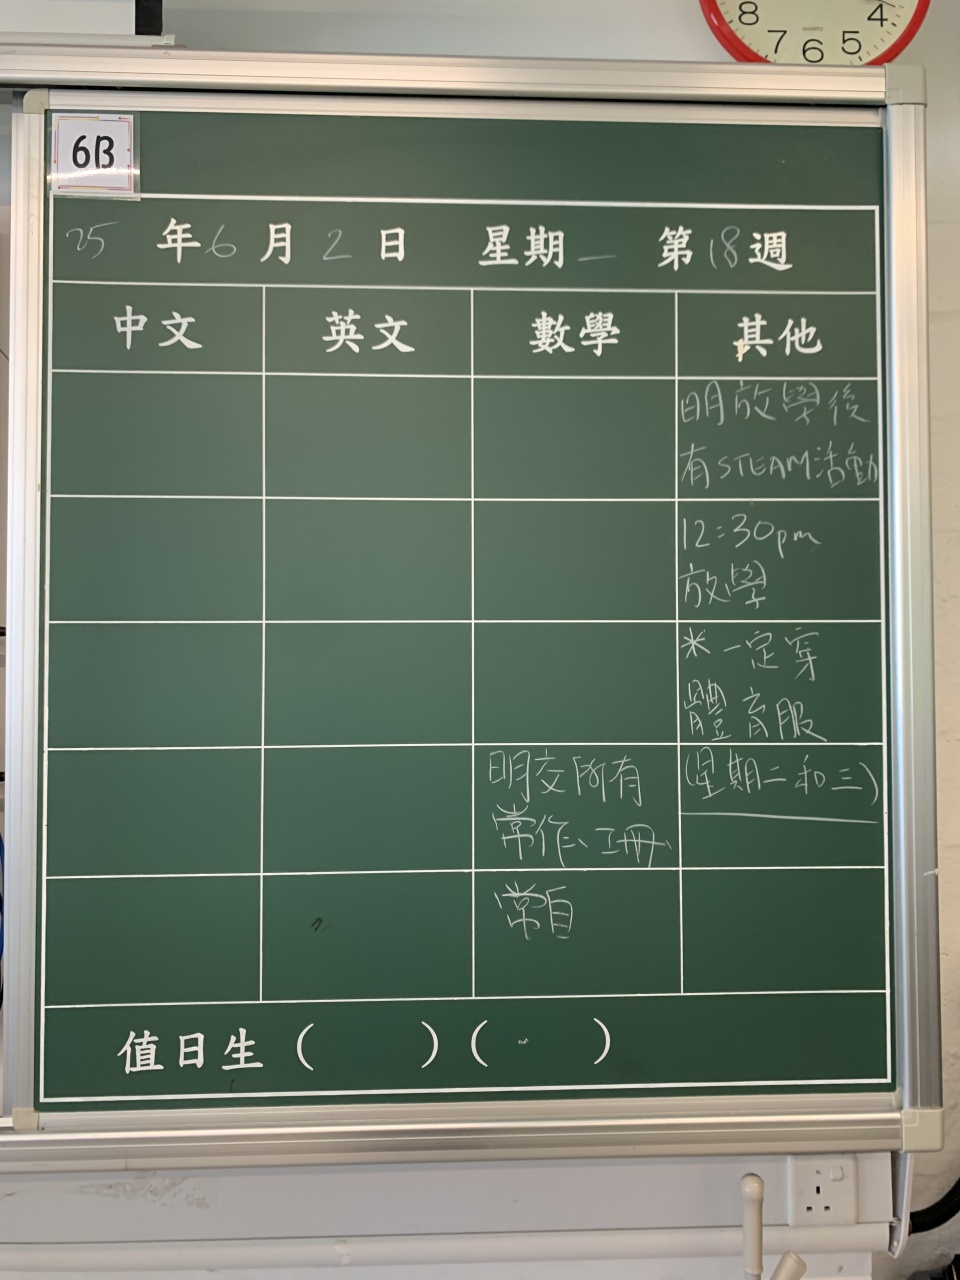 8 7 6 5 4
QUARTZ
6B
25年6月2日 星期一 第18週
中文 英文 數學 其他
明放學後
有STEAM活動
12:30pm
放學
* 一定穿
體育服
明交所有
常作、工冊、
常自
(星期二和三)
值日生( )( )